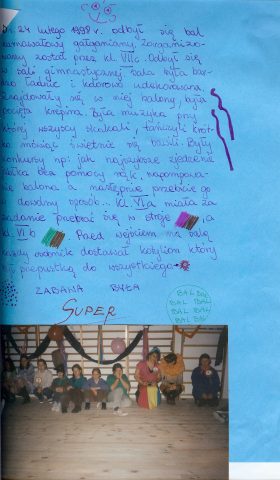 Dn. 24 lutego 1999 r. odbył się bal
karnawałowy gałganiarzy, zorganizo-
wany został przez kl. VIIIc. Odbył się
w sali gimnastycznej sala była bar-
dzo ładnie i kolorowo udekorowana.
znajdowały się w niej balony, była
pocięta krepina. Była muzyka przy
której wszyscy skakali, tańczyli krót-
ko mówiąc świetnie się bawili. Były
konkursy np: jak najszybsze zjedzenie
bez pomocy rąk, napompowa-
nie balona a następnie przebicie go
w dowolny sposób... kl. VI a miała za
zadanie przebrać się w stroje a
kl. VI b Przed wejściem na salę
każdy uczestnik dostawał kotylion który
był przepustką do wszystkiego
ZABAWA BYŁA
SUPER
BAL BAL
BAL BAL
BAL BAL
BAL BAL